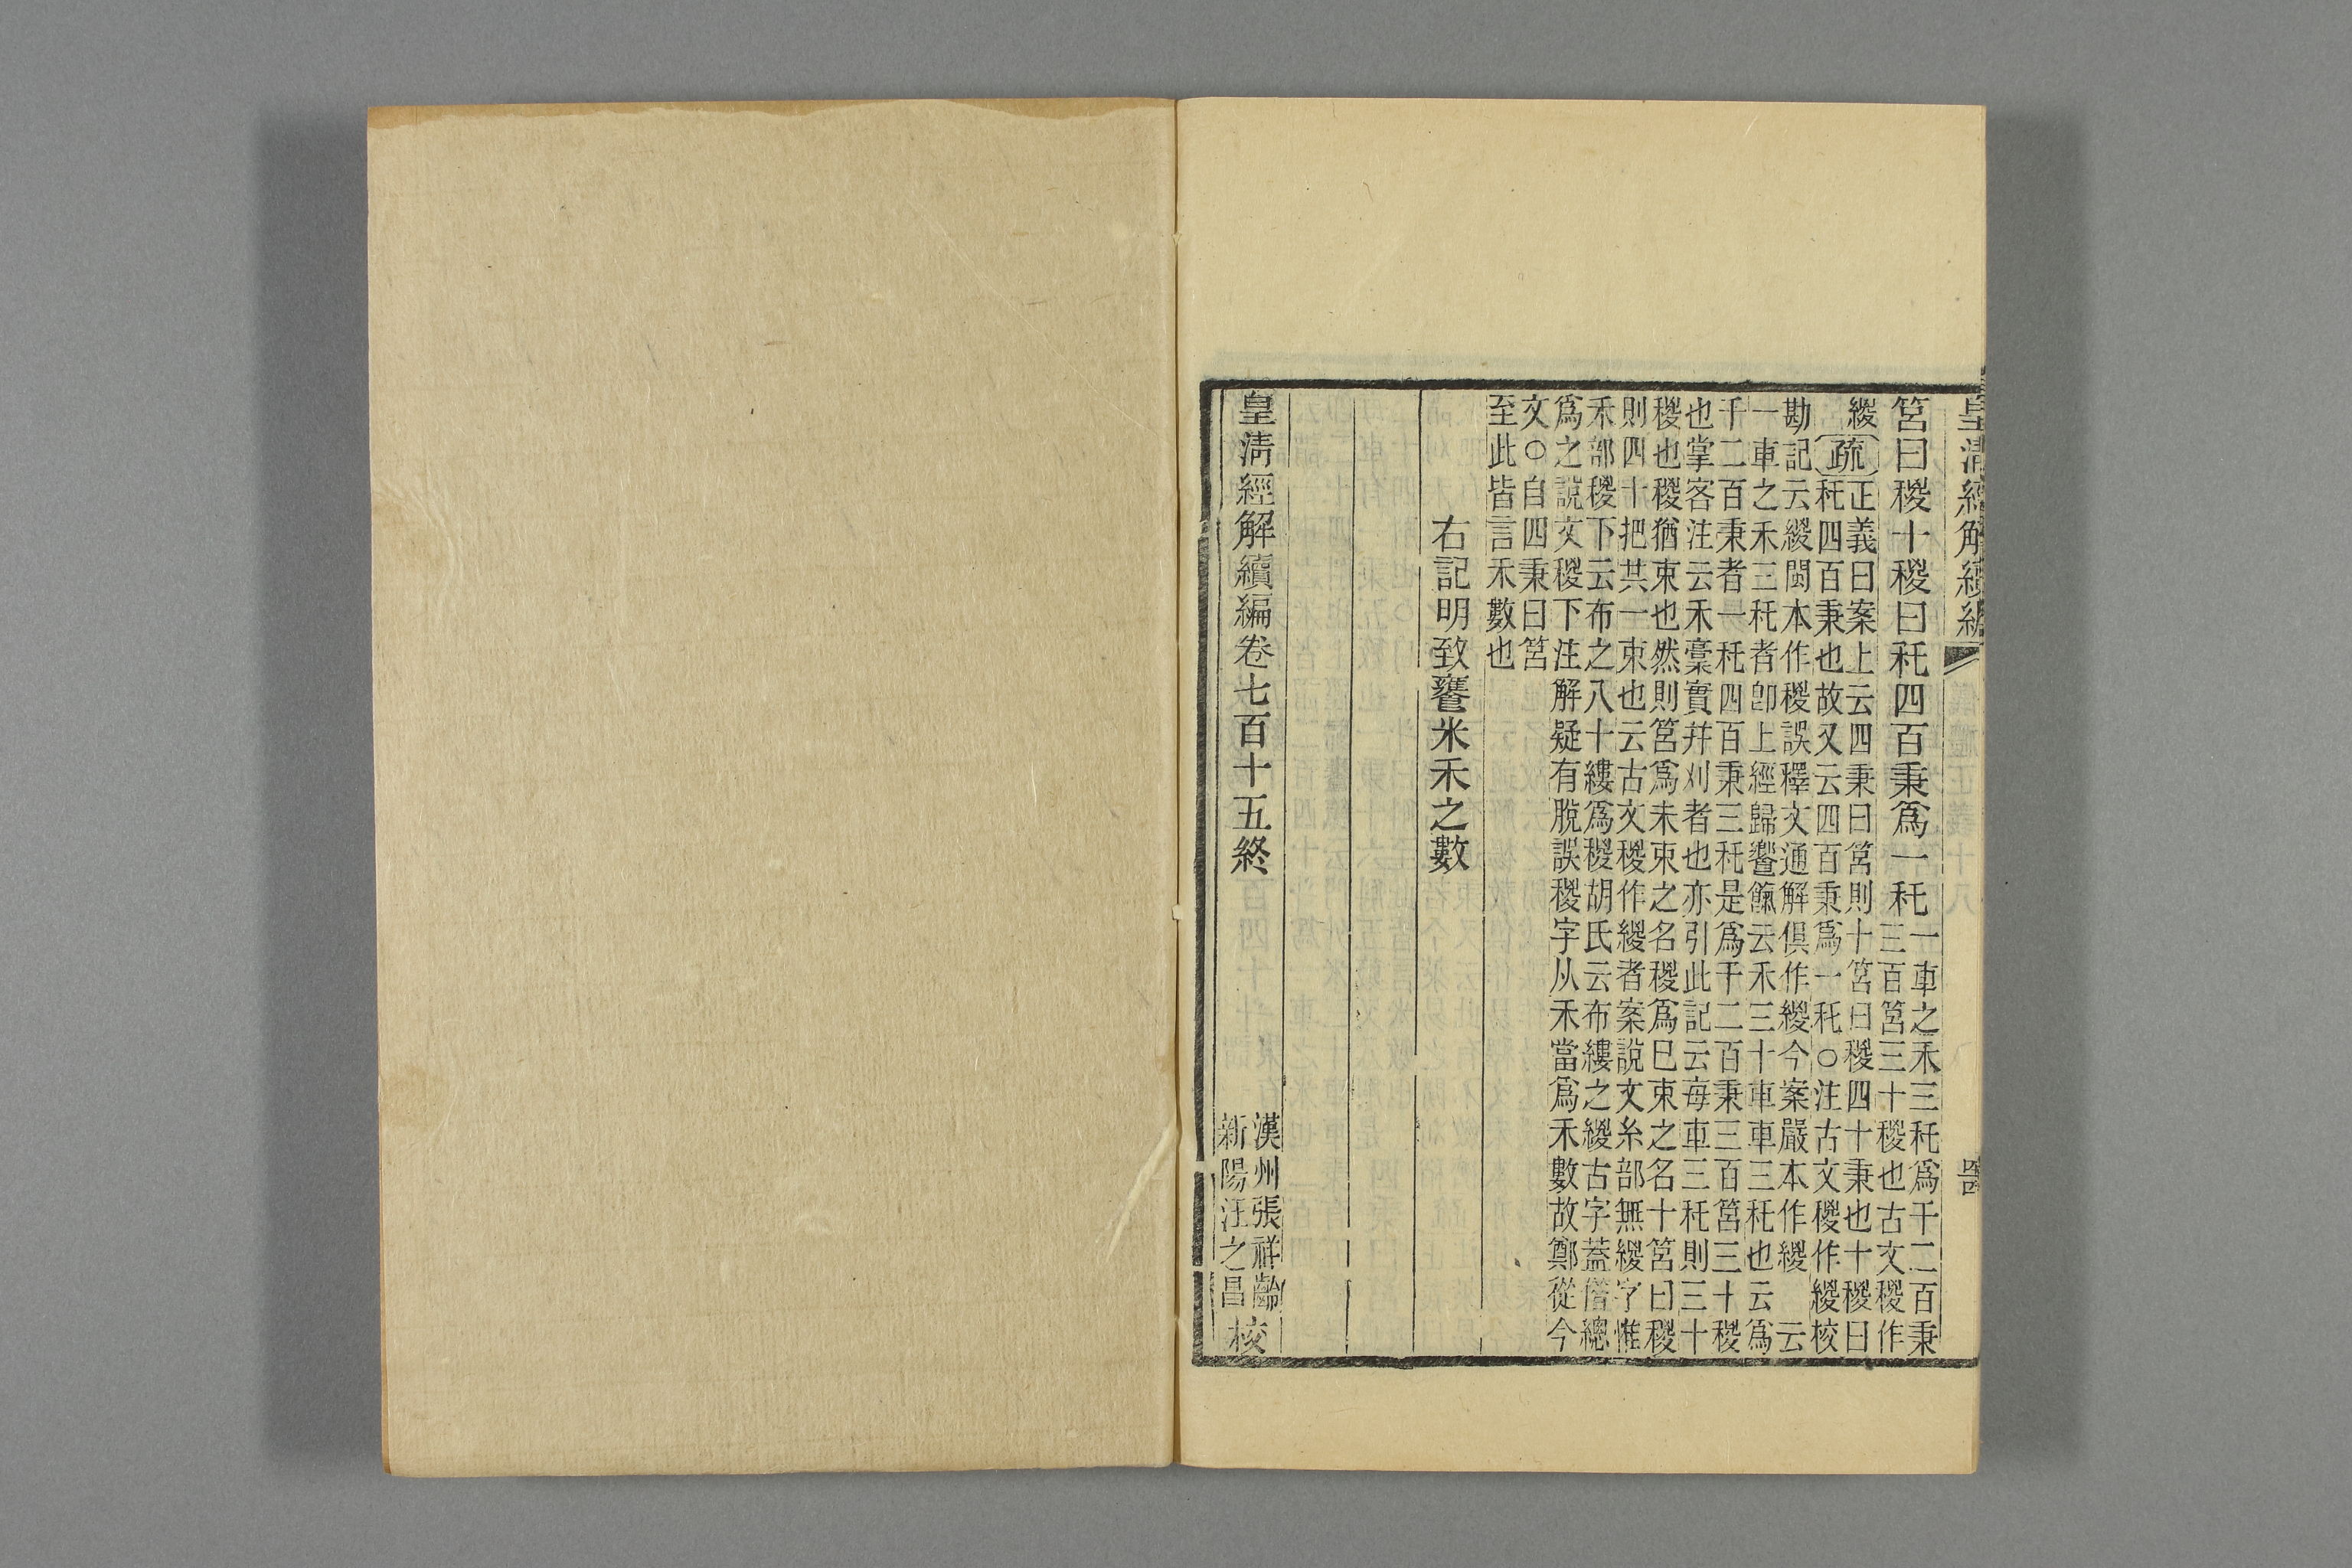 皇清經解續編
筥曰稯十稯曰秅四百秉爲一秅
一車之禾三秅爲千二百秉
三百筥三十稯也古文稯作
緵
疏
正義曰案上云四秉曰筥則十筥曰稯四十秉也十稯曰
秅四百秉也故又云四百秉爲一秅○注古文稯作緵校
勘記云緵閩本作稯誤釋文通解俱作緵今案嚴本作緵云
一車之禾三秅者卽上經歸饔餼云禾三十車車三秅也云爲
千二百秉者一秅四百秉三秅是爲千二百秉三百筥三十稯
也掌客注云禾稾實幷刈者也亦引此記云每車三秅則三十
稯也稯猶束也然則筥爲未束之名稯爲巳束之名十筥曰稯
則四十把其一束也云古文稯作緵者案說文糸部無緵字惟
禾部稯下云布之八十縷爲稯胡氏云布縷之緵古字蓋借總
爲之說文稯下注解疑有脫誤稯字从禾當爲禾數故鄭從今
文○自四秉曰筥
至此皆言禾數也
右記明致饔米禾之數
皇清經解續編卷七百十五終
漢州張祥齡
新陽汪之昌
校